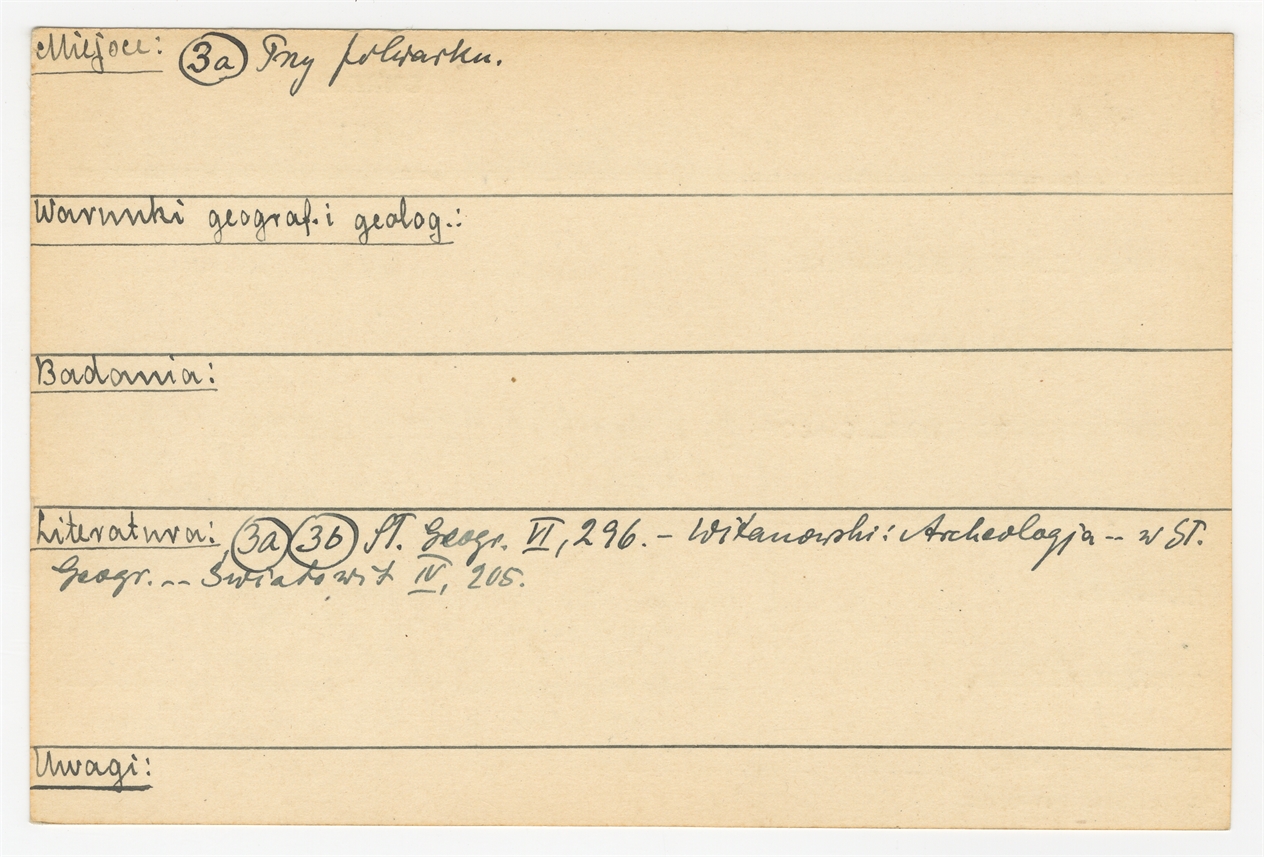 Miejsce: 3a Przy folwarku.
Warunki geograf. i geolog.:
Badania:
Literatura: 3a 3b Sł. Geogr. VI, 296. – Witanowski: Archeologja -- w Sł.
Geogr. -- Światowit IV, 205.
Uwagi: